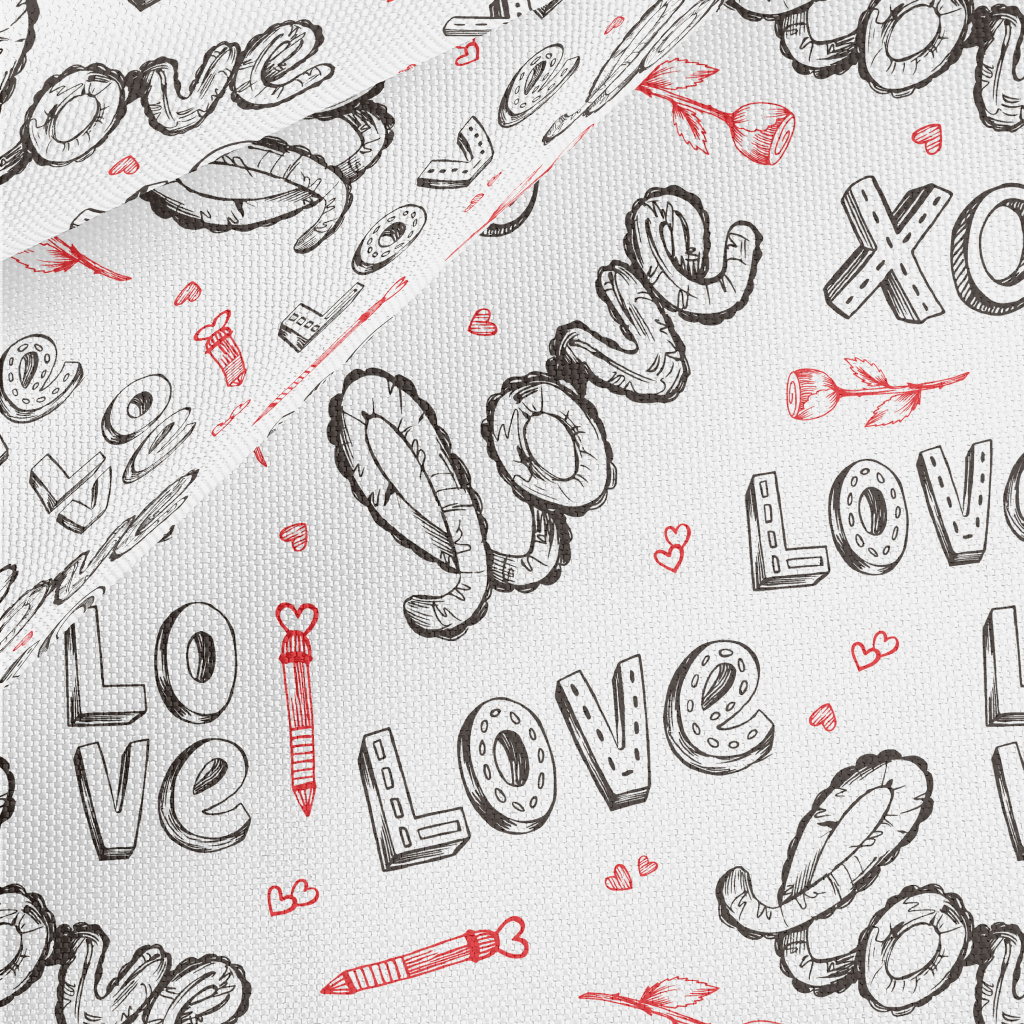 ove
LOVe
love
XO
LOVe
LO
Ve
LOVe
lov
ove